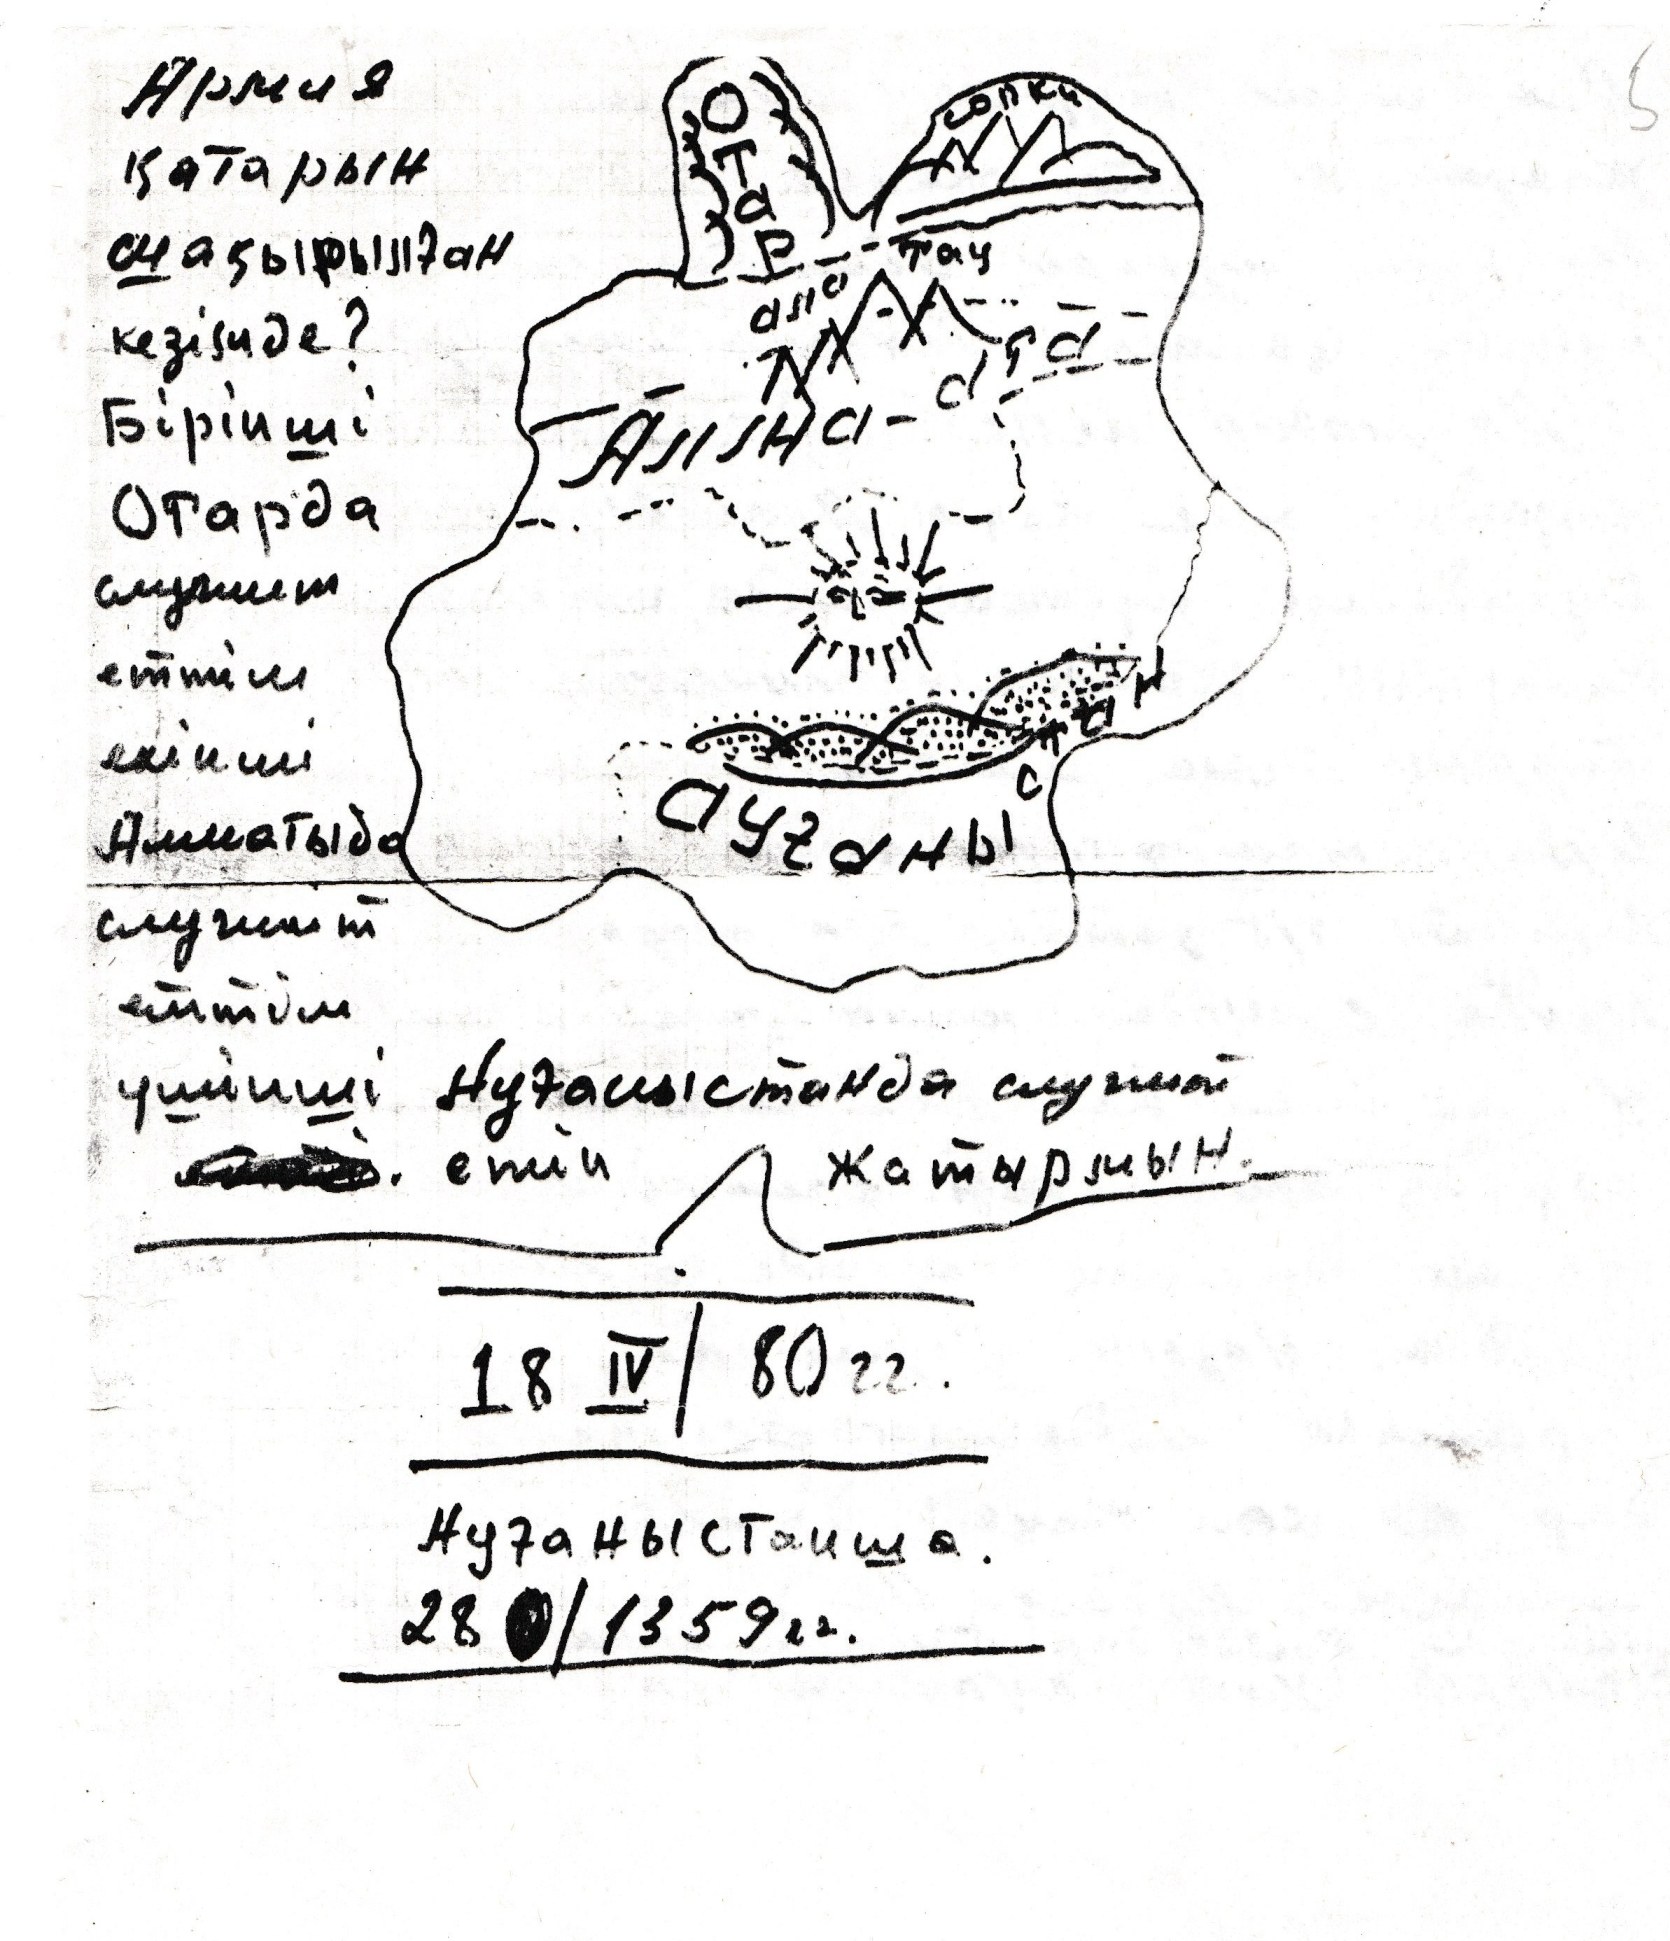 Армия
қатарын
шақырылған
кезінде?
Бірінші
Отарда
служит
еттім
екінші
Алматыда
служит
еттім
үшінші Ауғаныстанда служит
етіп жатырмын.
Отар
сопки
ала тау
Алма-ата
ауғаныстан
18 IV/80 гг.
Ауғаныстанша.
28 /1359 гг.